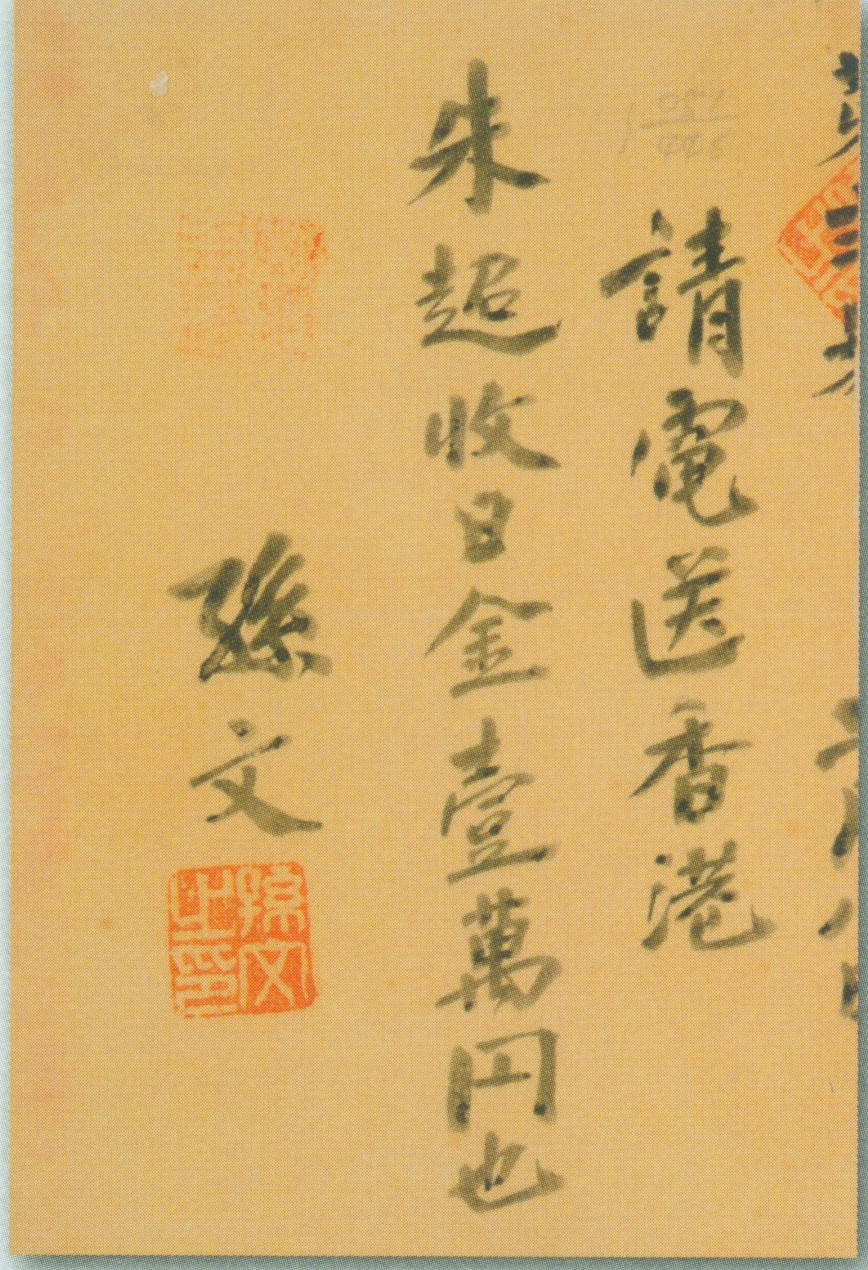 請電送香港
朱超收日金壹萬円也
孫文
孫文之印